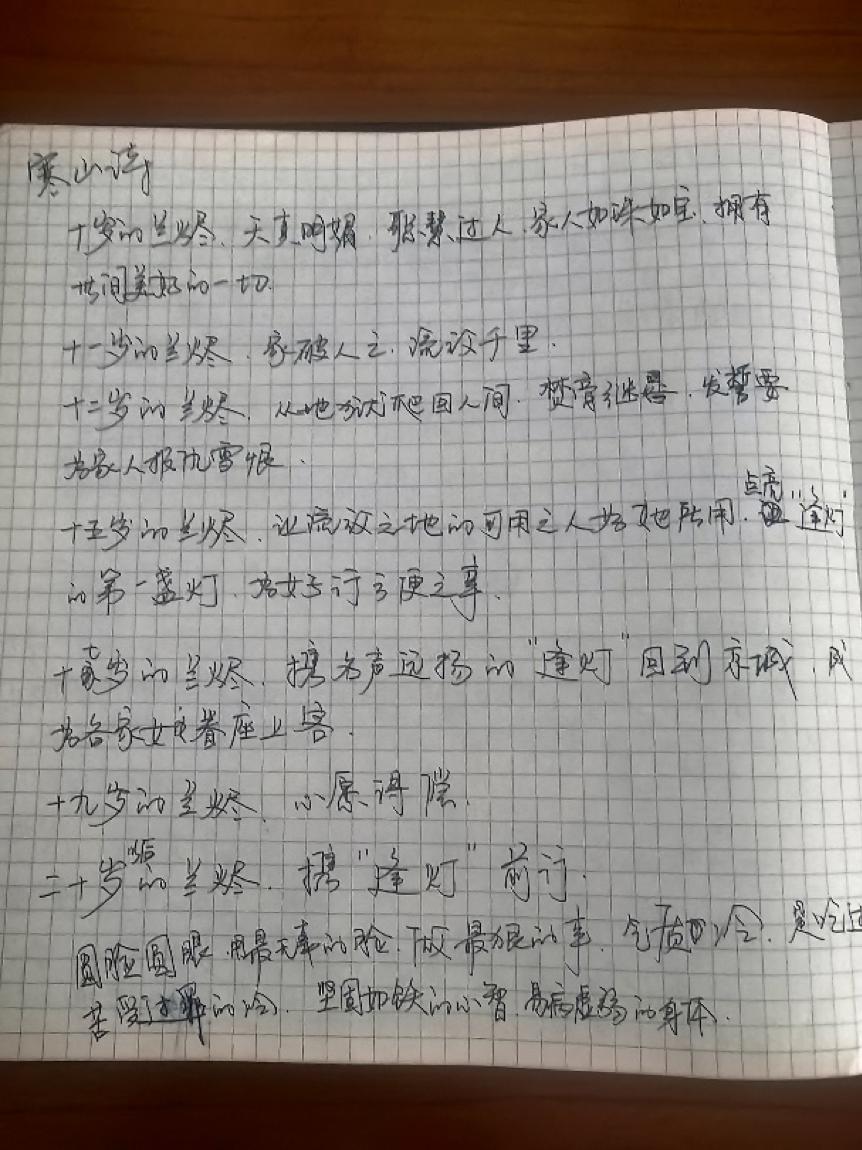 寒山诗
十岁的兰烬、天真明媚、聪慧过人、家人如珠如宝、拥有
世间美好的一切.
十一岁的兰烬、家破人亡、流放千里.
十二岁的兰烬、从地狱爬回人间、焚膏继晷、发誓要
为家人报仇雪恨.
十五岁的兰烬、让流放之地的可用之人为她所用、点亮“逢灯”
的第一盏灯、为女子行方便之事.
十七岁的兰烬、携名声远扬的“逢灯”回到京城、成
为各家女眷座上客.
十九岁的兰烬、心愿得偿.
二十岁以后的兰烬、携“逢灯”前行.
圆脸圆眼、用最无辜的脸、做最狠的事、气质冷、是吃过
苦受过罪的冷、坚固如铁的心智、易病虚弱的身体.